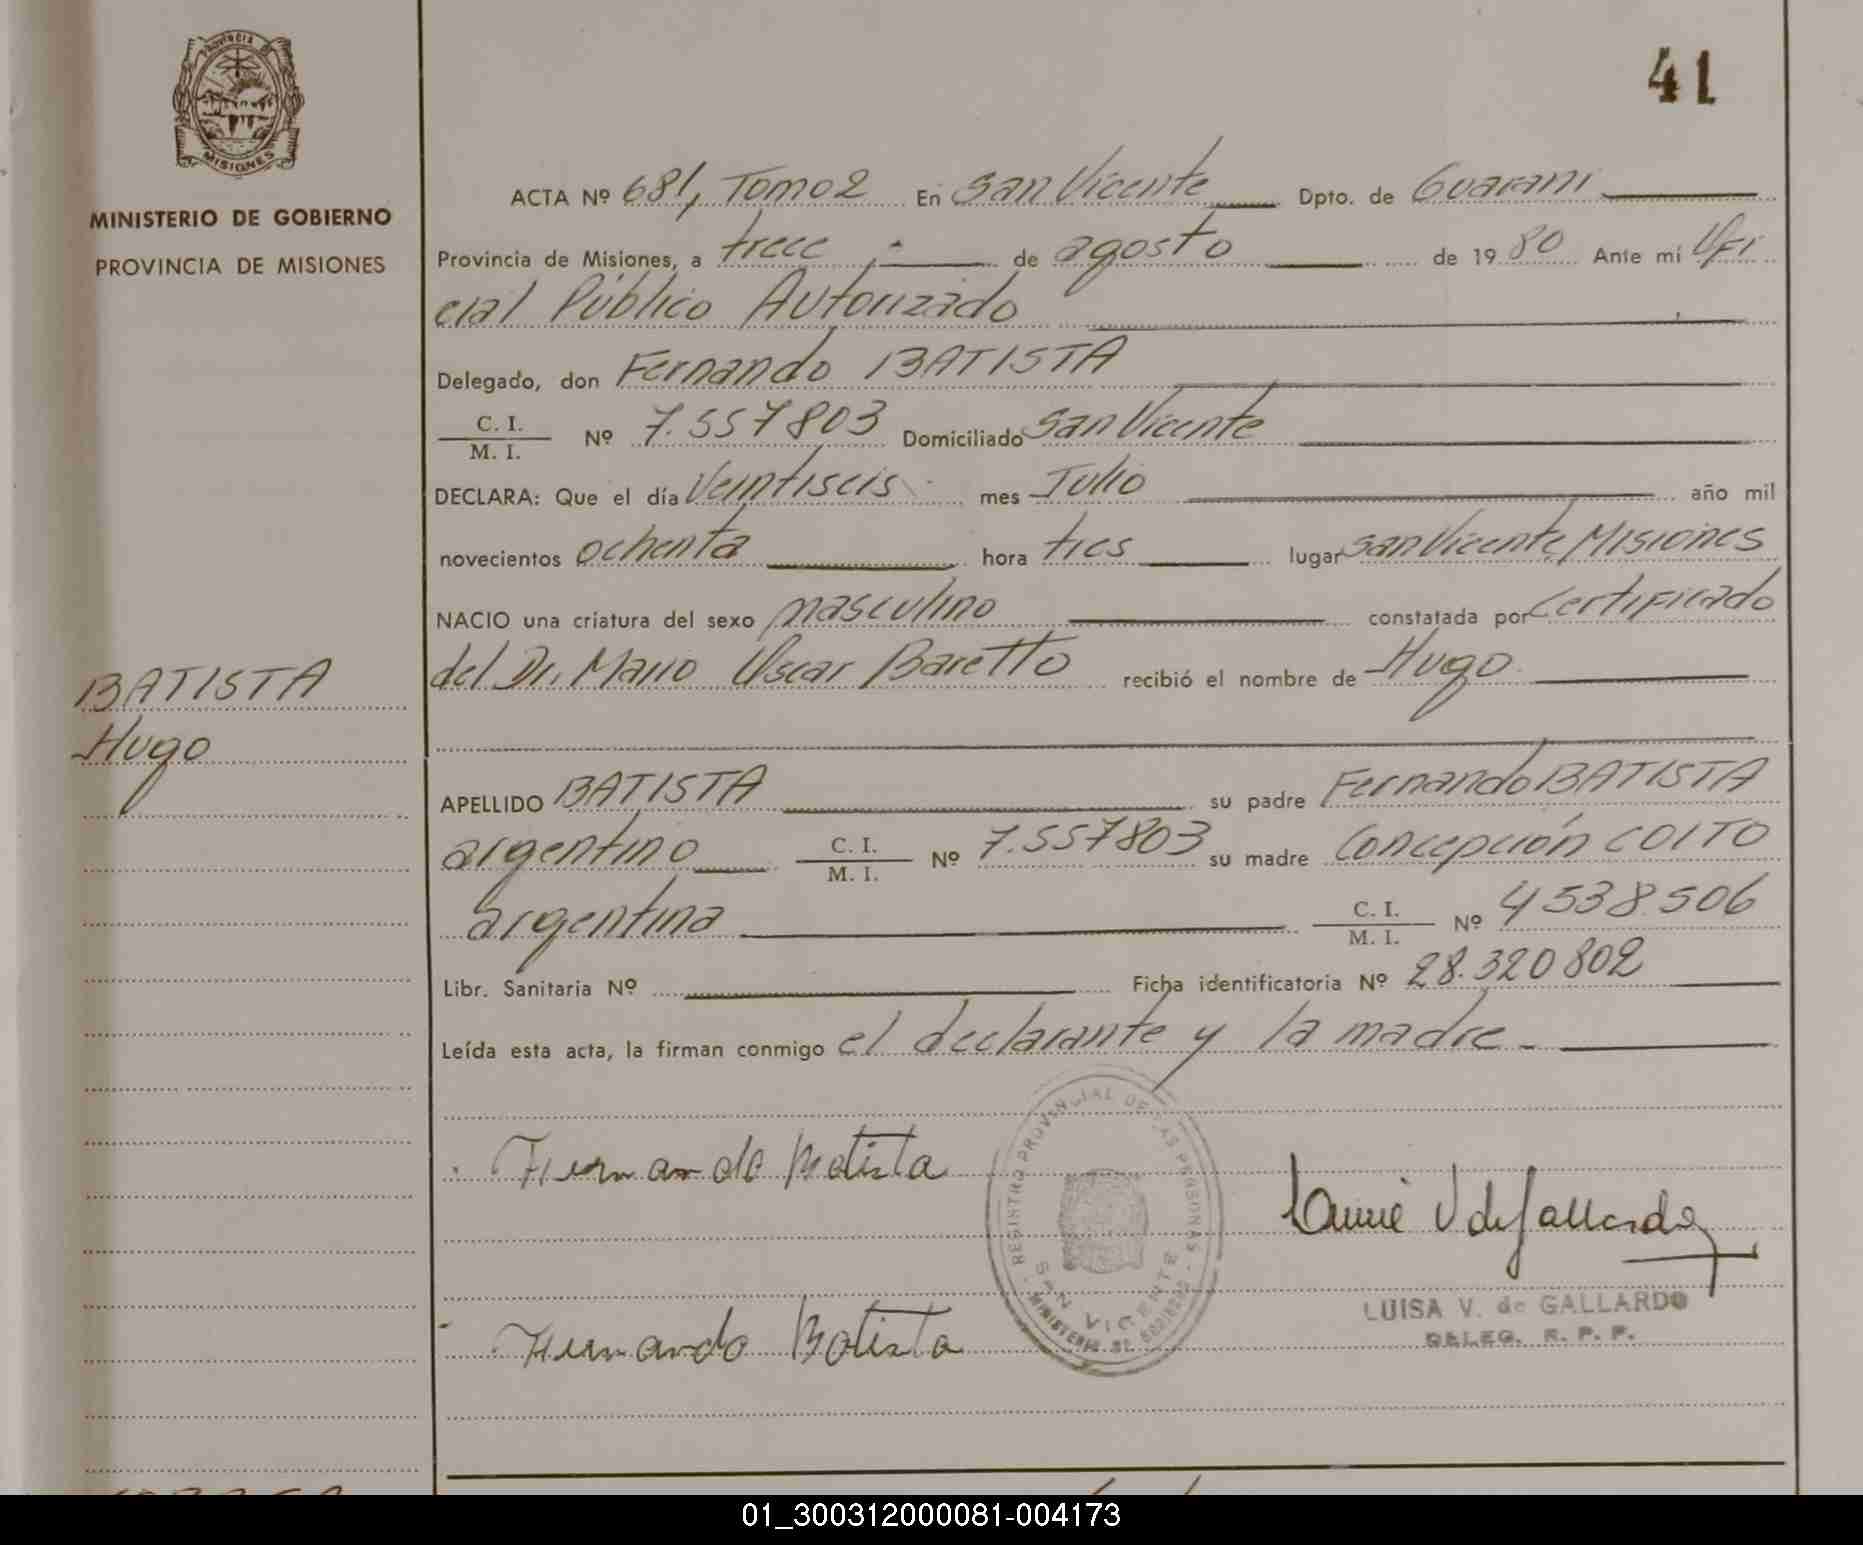 41
PROVINCIA DE
MISIONES
MINISTERIO DE GOBIERNO
PROVINCIA DE MISIONES
BATISTA
Hugo
ACTA Nº 681, Tomo 2 En San Vicente Dpto. de Guarani
Provincia de Misiones, a trece de agosto de 1980 Ante mí Ofi
cial Público Autorizado
Delegado, don Fernando BATISTA
C. I.
M. I. Nº 7.557803 Domiciliado San Vicente
DECLARA: Que el día Veintiseis mes Julio año mil
novecientos ochenta hora tres lugar San Vicente, Misiones
NACIO una criatura del sexo masculino constatada por Certificado
del Dr. Mario Oscar Baretto recibió el nombre de Hugo
APELLIDO BATISTA su padre Fernando BATISTA
argentino C. I. M. I. Nº 7.557803 su madre Concepción COITO
argentina C. I. M. I. Nº 4538.506
Libr. Sanitaria Nº Ficha identificatoria Nº 28.320802
Leída esta acta, la firman conmigo el declarante y la madre
Fernando Batista
REGISTRO PROVINCIAL DE LAS PERSONAS
SAN VICENTE
MINISTERIO DE GOBIERNO
V de Gallardo
LUISA V. de GALLARDO
DELEG. R. P. P.
Fernando Batista
01_300312000081-004173